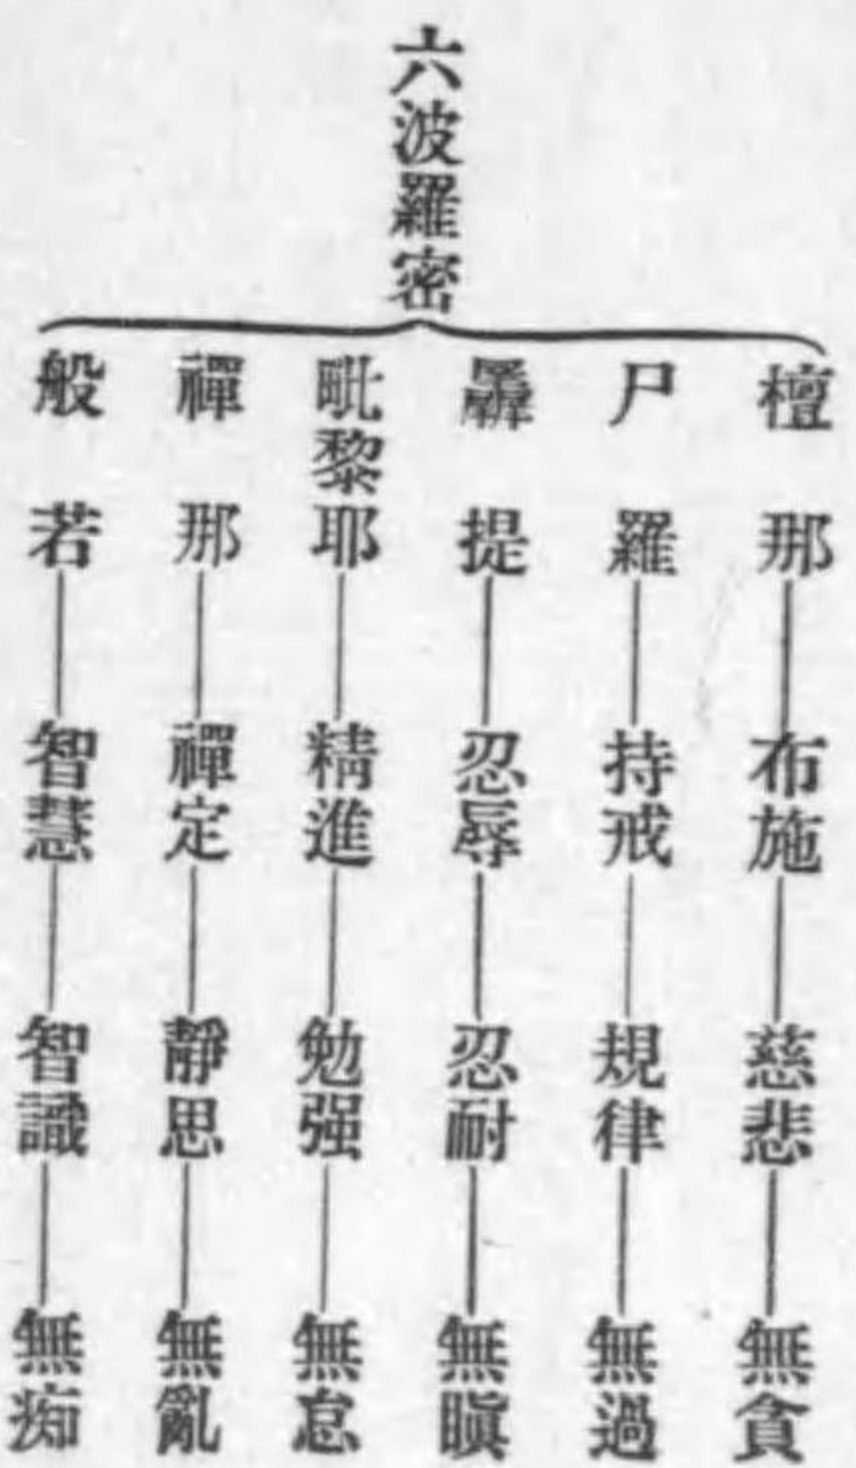 六波羅密
檀那——布施——慈悲——無貪
尸羅——持戒——規律——無過
羼提——忍辱——忍耐——無瞋
毗黎耶——精進——勉强——無怠
禪那——禪定——靜思——無亂
般若——智慧——智識——無痴